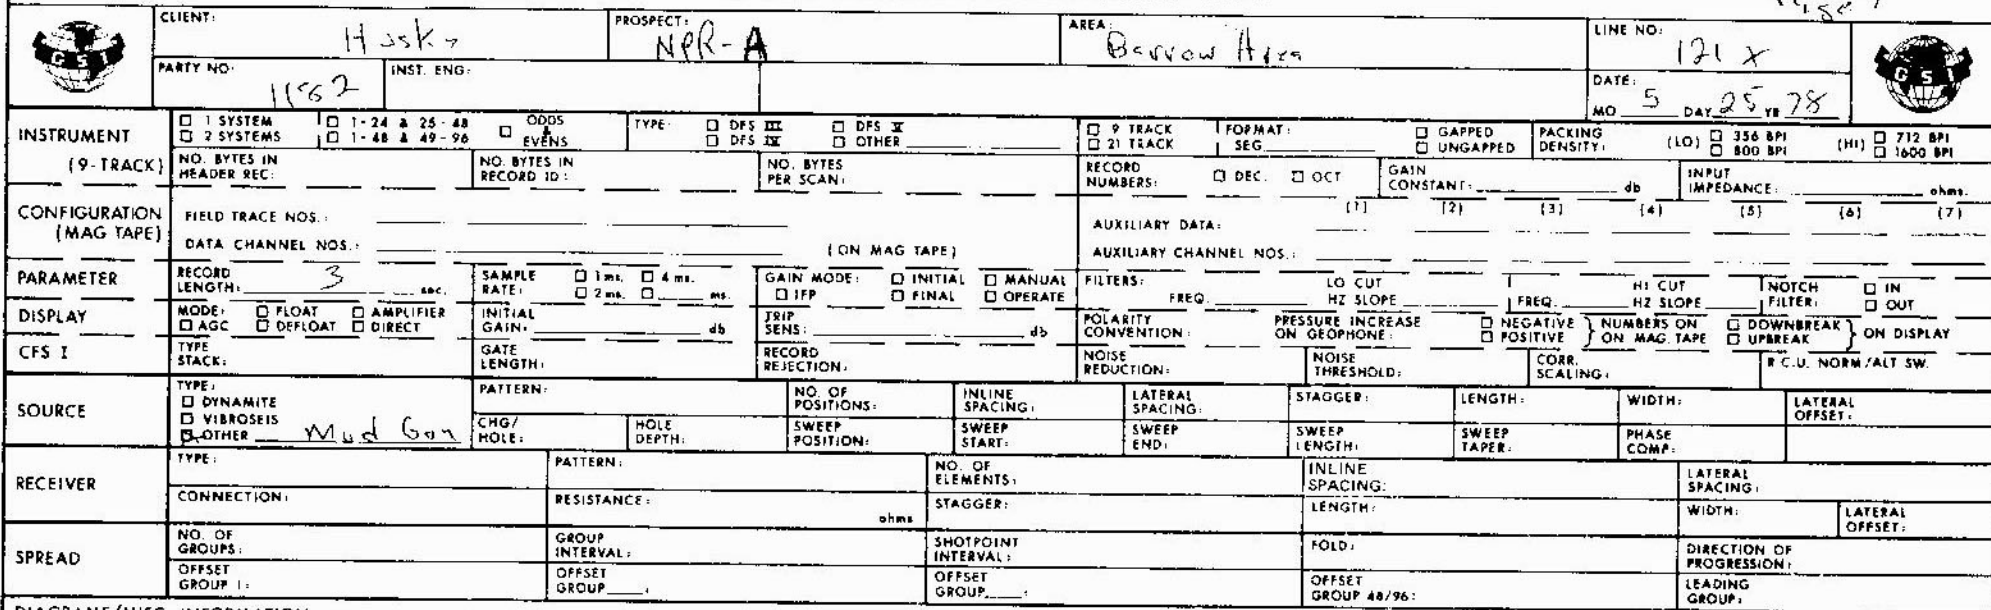 CLIENT: Husky PROSPECT: NPR-A AREA: Barrow Area LINE NO: 121 X
GSI
PARTY NO: 1162 INST. ENG: DATE: MO 5 DAY 25 YR 78
GSI
INSTRUMENT (9-TRACK)
1 SYSTEM 1-24 & 25-48 ODDS & EVENS TYPE: DFS III DFS V 9 TRACK FORMAT: GAPPED PACKING DENSITY: (LO) 356 BPI (HI) 712 BPI
2 SYSTEMS 1-48 & 49-96 DFS IV OTHER 21 TRACK SEG UNGAPPED 800 BPI 1600 BPI
NO. BYTES IN HEADER REC: NO. BYTES IN RECORD ID: NO. BYTES PER SCAN: RECORD NUMBERS: DEC. OCT GAIN CONSTANT: db INPUT IMPEDANCE: ohms.
CONFIGURATION (MAG TAPE)
FIELD TRACE NOS.: AUXILIARY DATA: (1) (2) (3) (4) (5) (6) (7)
DATA CHANNEL NOS.: (ON MAG TAPE) AUXILIARY CHANNEL NOS.:
PARAMETER RECORD LENGTH: 3 sec. SAMPLE RATE: 1 ms. 4 ms. 2 ms. ms. GAIN MODE: INITIAL MANUAL IFP FINAL OPERATE FILTERS: LO CUT FREQ. HZ SLOPE HI CUT FREQ. HZ SLOPE NOTCH FILTER: IN OUT
DISPLAY MODE: FLOAT AMPLIFIER AGC DEFLOAT DIRECT INITIAL GAIN: db TRIP SENS: db POLARITY CONVENTION: PRESSURE INCREASE ON GEOPHONE: NEGATIVE POSITIVE } NUMBERS ON MAG. TAPE DOWNBREAK UPBREAK } ON DISPLAY
CFS I TYPE STACK: GATE LENGTH: RECORD REJECTION: NOISE REDUCTION: NOISE THRESHOLD: CORR. SCALING: R.C.U. NORM/ALT SW.
SOURCE
TYPE: DYNAMITE VIBROSEIS OTHER Mud Gun
PATTERN: NO. OF POSITIONS: INLINE SPACING: LATERAL SPACING: STAGGER: LENGTH: WIDTH: LATERAL OFFSET:
CHG/HOLE: HOLE DEPTH: SWEEP POSITION: SWEEP START: SWEEP END: SWEEP LENGTH: SWEEP TAPER: PHASE COMP:
RECEIVER
TYPE: PATTERN: NO. OF ELEMENTS: INLINE SPACING: LATERAL SPACING:
CONNECTION: RESISTANCE: ohms STAGGER: LENGTH: WIDTH: LATERAL OFFSET:
SPREAD
NO. OF GROUPS: GROUP INTERVAL: SHOTPOINT INTERVAL: FOLD: DIRECTION OF PROGRESSION:
OFFSET GROUP 1: OFFSET GROUP : OFFSET GROUP : OFFSET GROUP 48/96: LEADING GROUP: